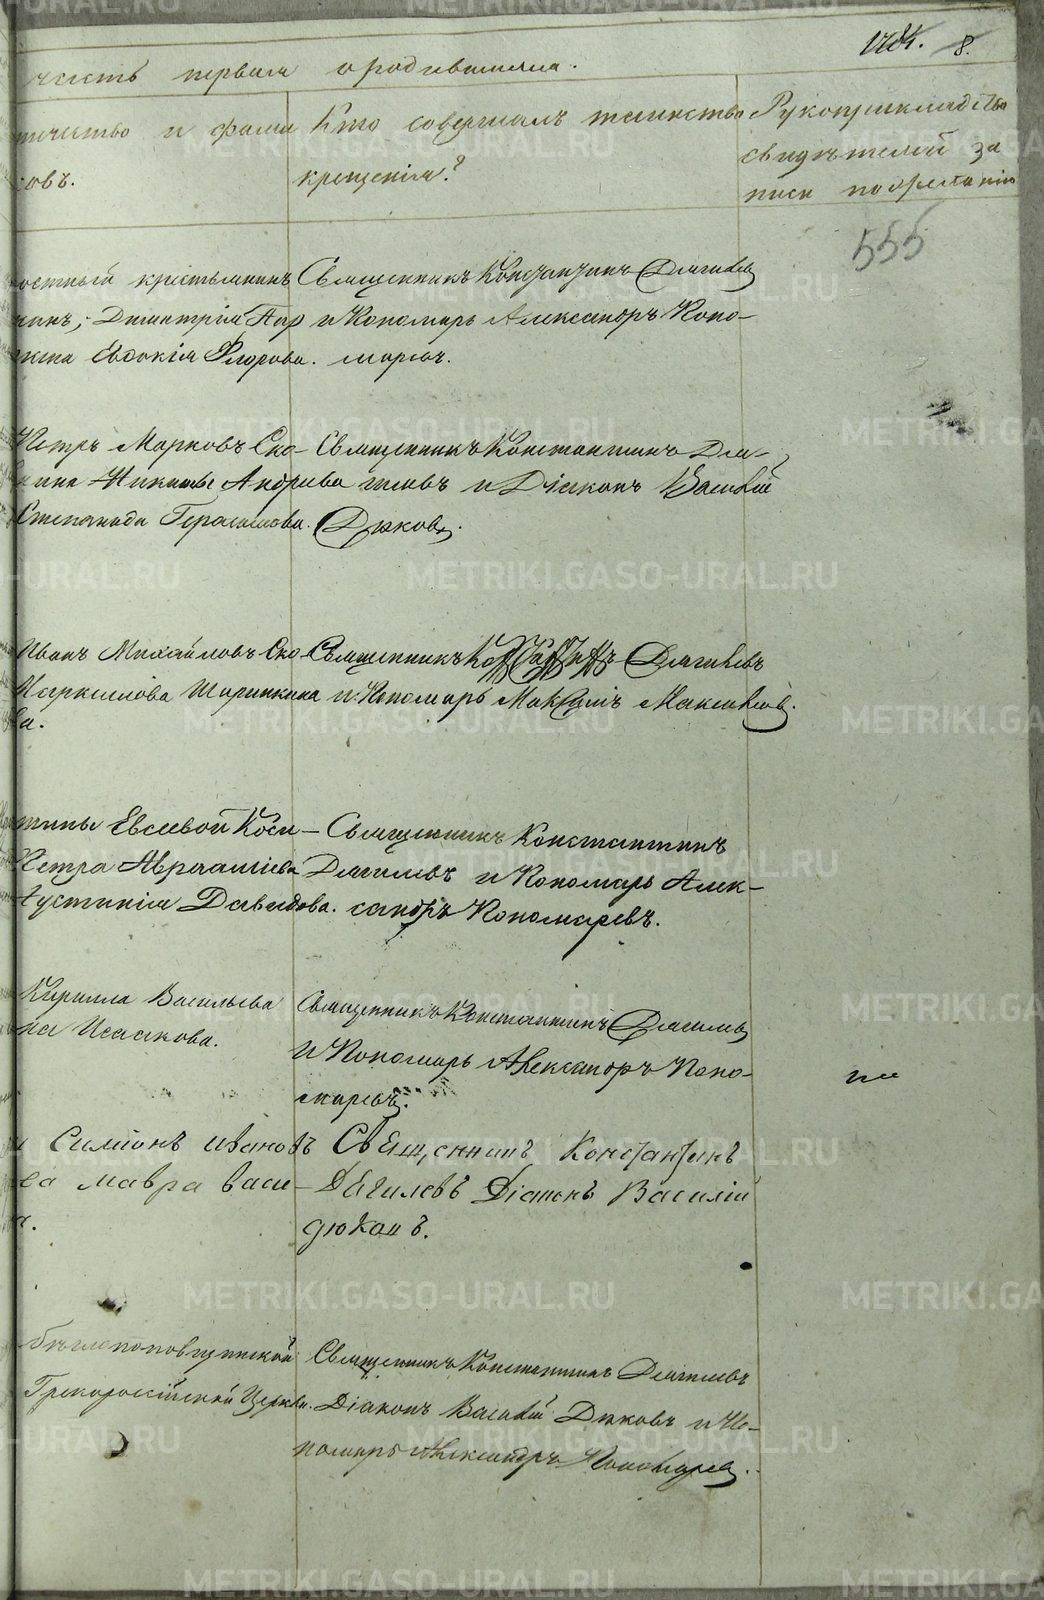 1781. 8.
часть первая о родившихся.
течество и фами
овъ.
Кто совершалъ таинство
крещенія?
Рукоприкладство
свидѣтелей за
писи по желанію
555
остный крестьянинъ
инъ; Димитрій Пар
Евдокія Фролова.
Священникъ Константинъ Дягилевъ
и Пономарь Александръ Поно-
маревъ.
Петръ Марковъ Ско-
Никиты Андреева
Степанида Герасимова.
Священникъ Константинъ Дяги-
левъ и Діаконъ Василій
Дюковъ.
Иванъ Михайловъ Ско-
Шаринкина
ва.
Священникъ Константинъ Дягилевъ
и Пономарь Максимъ Максимовъ.
тины Евсеевой Коси-
Петра Авраамiева
Густинія Давыдова.
Священникъ Константинъ
Дягилевъ и Пономарь Алек-
сандръ Пономаревъ.
Кирилла Васильева
на Исаакова.
Священникъ Константинъ Дягилевъ
и Пономарь Александръ Поно-
маревъ.
Симіонъ ивановъ
ва мавра васи-
Свещенникъ Константинъ
Дягилевъ Діаконъ Василій
дюковъ.
бѣглопоповщинской
Грекороссійской Церкви.
Священникъ Константинъ Дягилевъ
Діаконъ Василій Дюковъ и По-
номарь Александръ Пономаревъ.
METRIKI.GASO-URAL.RU